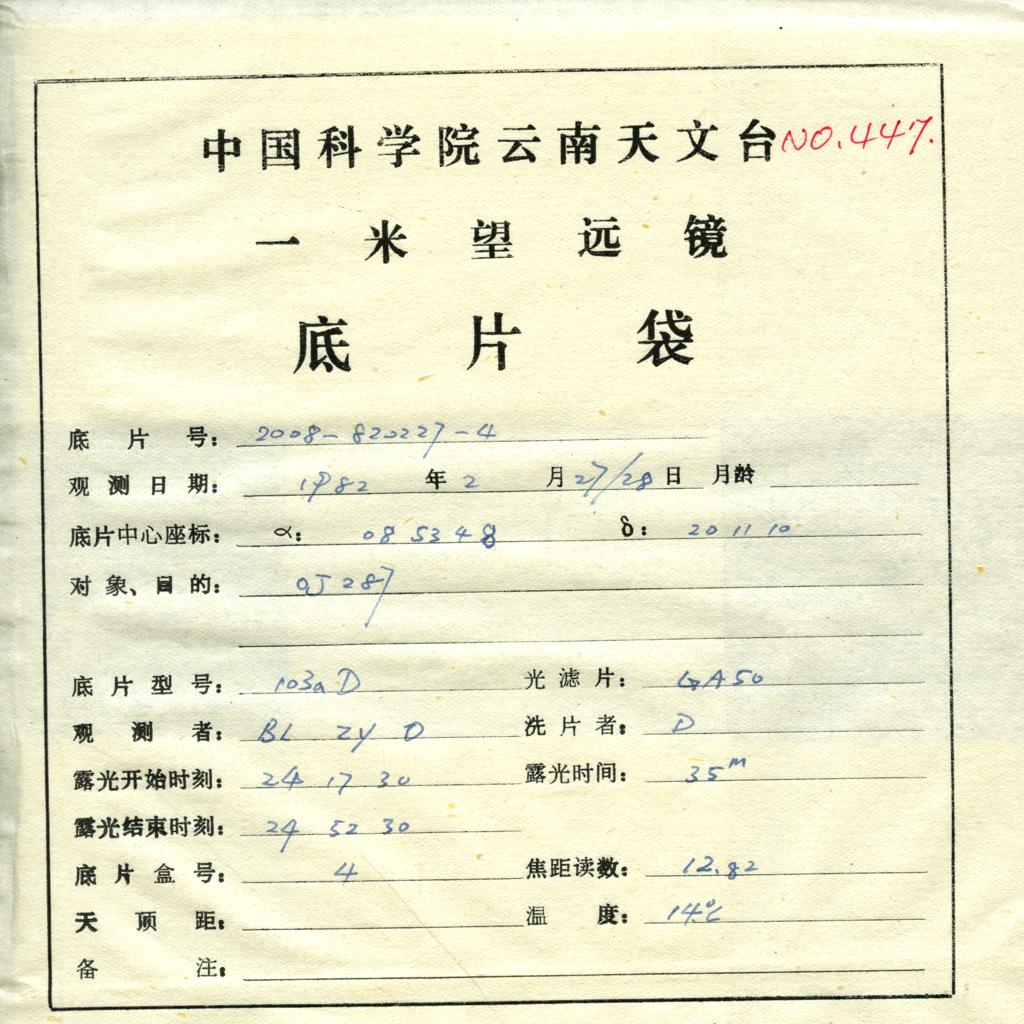 中国科学院云南天文台 NO.447.
一米望远镜
底片袋
底片号: 2008-820227-4
观测日期: 1982 年 2 月 27/28 日 月龄
底片中心座标: α: 08 53 48 δ: 20 11 10
对象、目的: OJ 287
底片型号: 103a D 光滤片: GA50
观测者: BL ZY D 洗片者: D
露光开始时刻: 24 17 30 露光时间: 35M
露光结束时刻: 24 52 30
底片盒号: 4 焦距读数: 12.82
天顶距: 温度: 14℃
备注: